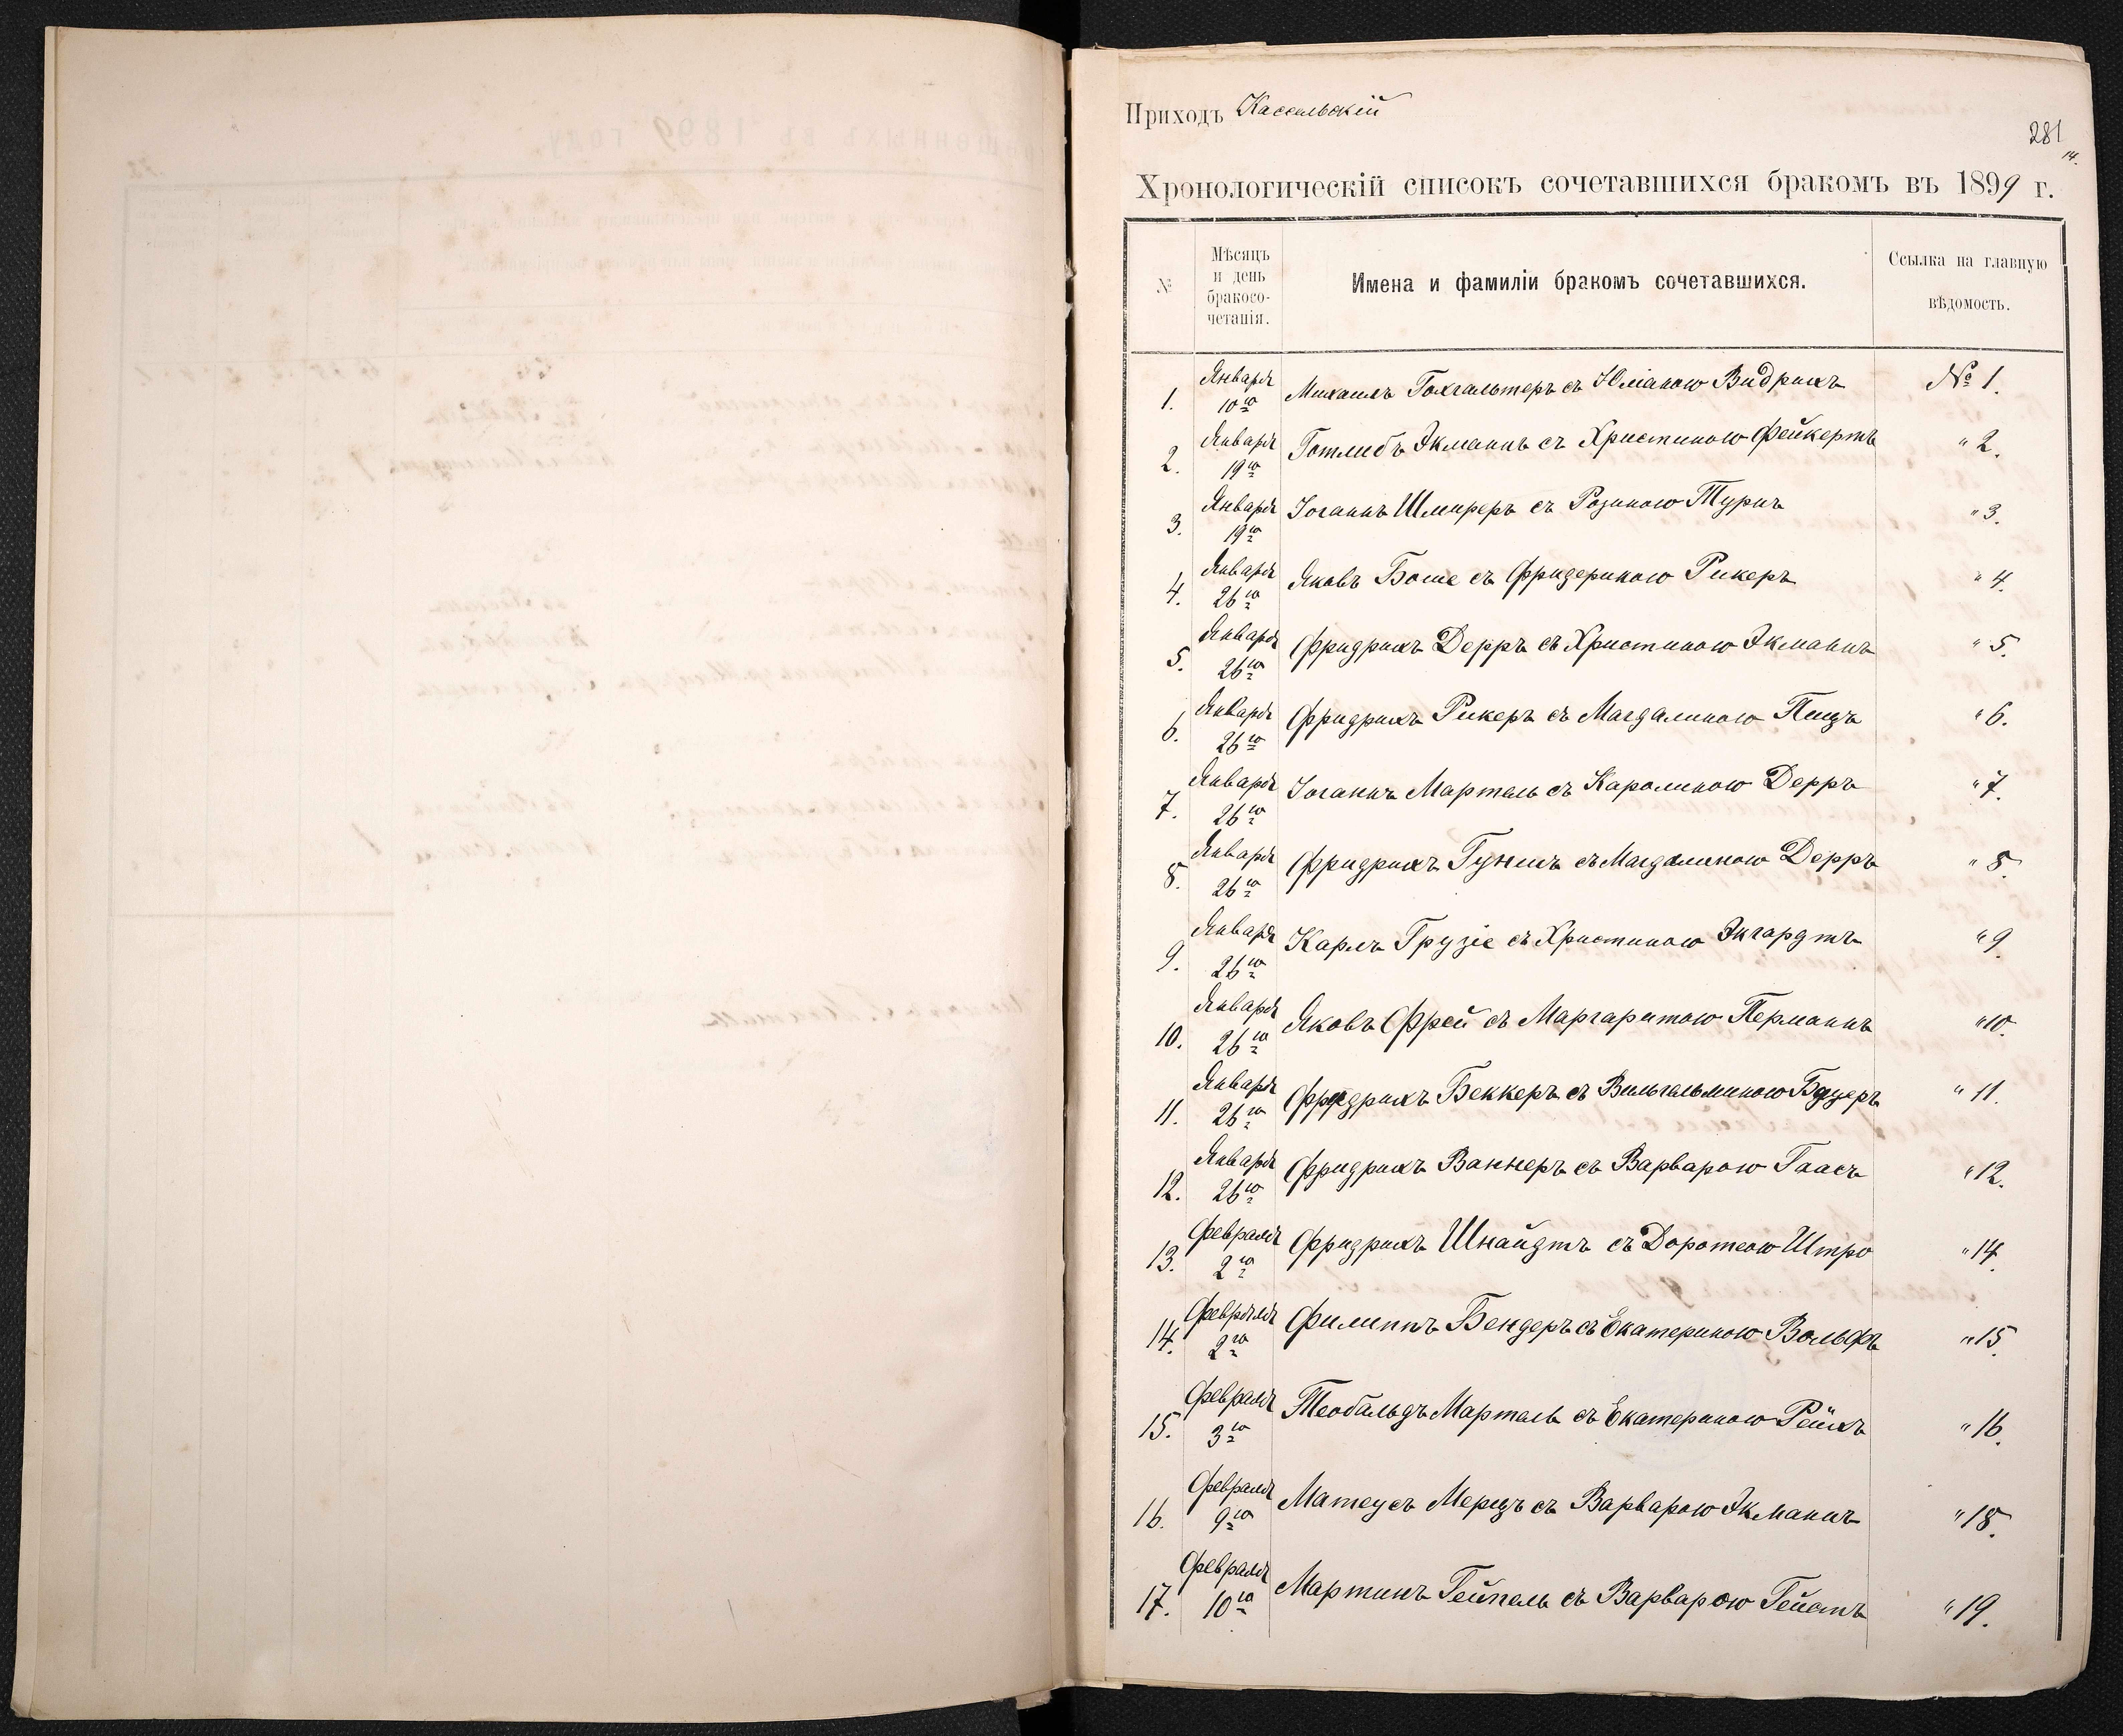 Приходъ Кассельскій
281
14.
Хронологическій списокъ сочетавшихся бракомъ въ 1899 г.
№
Мѣсяцъ
и день
бракосо-
четанія.
Имена и фамиліи бракомъ сочетавшихся.
Ссылка на главную
вѣдомость.
1. Января 10го Михаилъ Гохгальтеръ съ Юліаною Видрихъ № 1.
2. Января 19го Готлибъ Экманнъ съ Христиною Фейкертъ " 2.
3. Января 19го Іоганнъ Шмиреръ съ Розиною Туричъ " 3.
4. Января 26го Яковъ Боше съ Фридерикою Рикеръ " 4.
5. Января 26го Фридрихъ Дерръ съ Христиною Экманнъ " 5.
6. Января 26го Фридрихъ Рикеръ съ Магдалиною Пицъ " 6.
7. Января 26го Іоганнъ Марталь съ Каролиною Дерръ " 7.
8. Января 26го Фридрихъ Гунишъ съ Магдалиною Дерръ " 8.
9. Января 26го Карлъ Грузіе съ Христиною Экгардтъ " 9
10. Января 26го Яковъ Фрей съ Маргаритою Перманнъ " 10.
11. Января 26го Фридрихъ Беккеръ съ Вильгельминою Бауеръ " 11.
12. Января 26го Фридрихъ Ваннеръ съ Варварою Гаасъ " 12.
13. Февраля 2го Фридрихъ Шнайдтъ съ Доротеою Штро " 14.
14. Февраля 2го Филиппъ Бендеръ съ Екатериною Вольфъ " 15.
15. Февраля 3го Теобальдъ Марталь съ Екатериною Рейхъ " 16.
16. Февраля 9го Матеусъ Мерцъ съ Варварою Экманнъ " 18.
17. Февраля 10го Мартинъ Гейпель съ Варварою Гейстъ " 19.